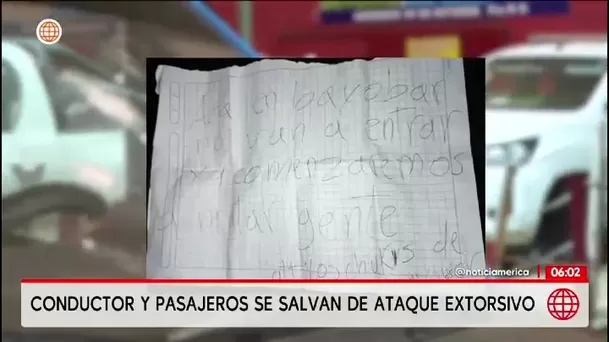 Ya en bayobar
no van a entrar
comenzaremos
A matar gente
de
@noticiamerica
06:02
CONDUCTOR Y PASAJEROS SE SALVAN DE ATAQUE EXTORSIVO